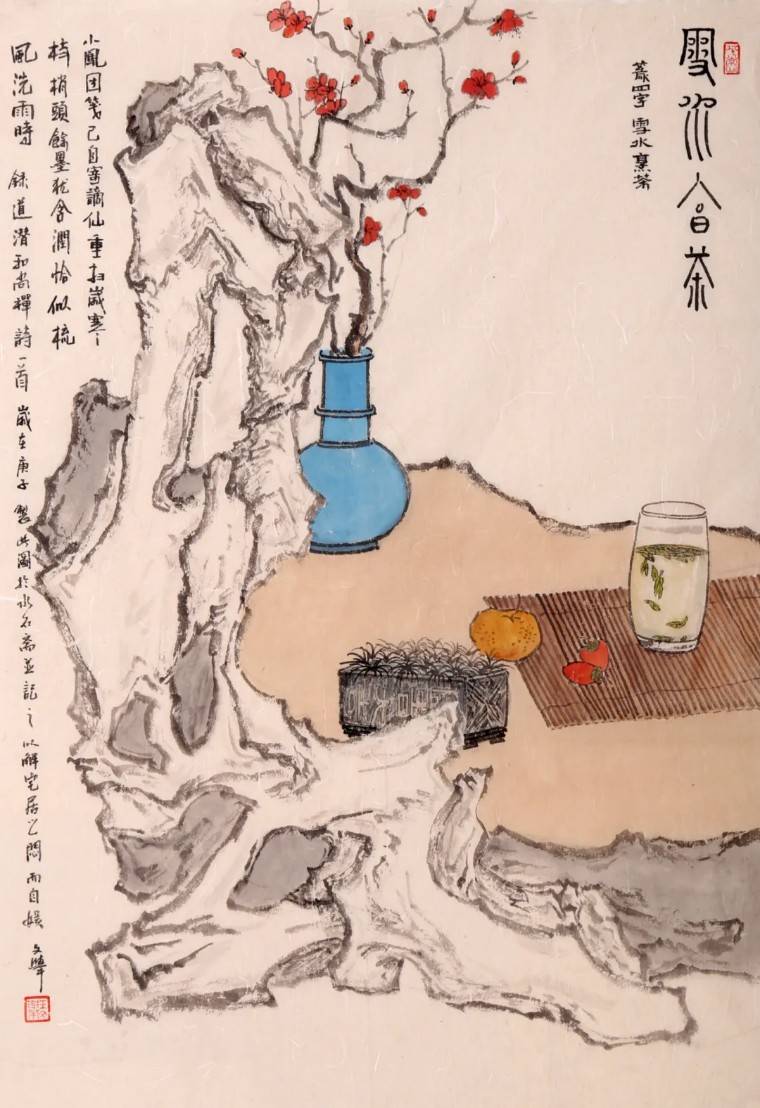 雪水亯茶
篆四字 雪水烹茶
小鳳团箋已自寄謫仙重扫歲寒〻
枝梢頭餘墨犹含潤恰似梳
風洗雨時 録道潜和尚禪詩一首 歲在庚子 製此圖於水石斋並記之 以解宅居之悶而自娱